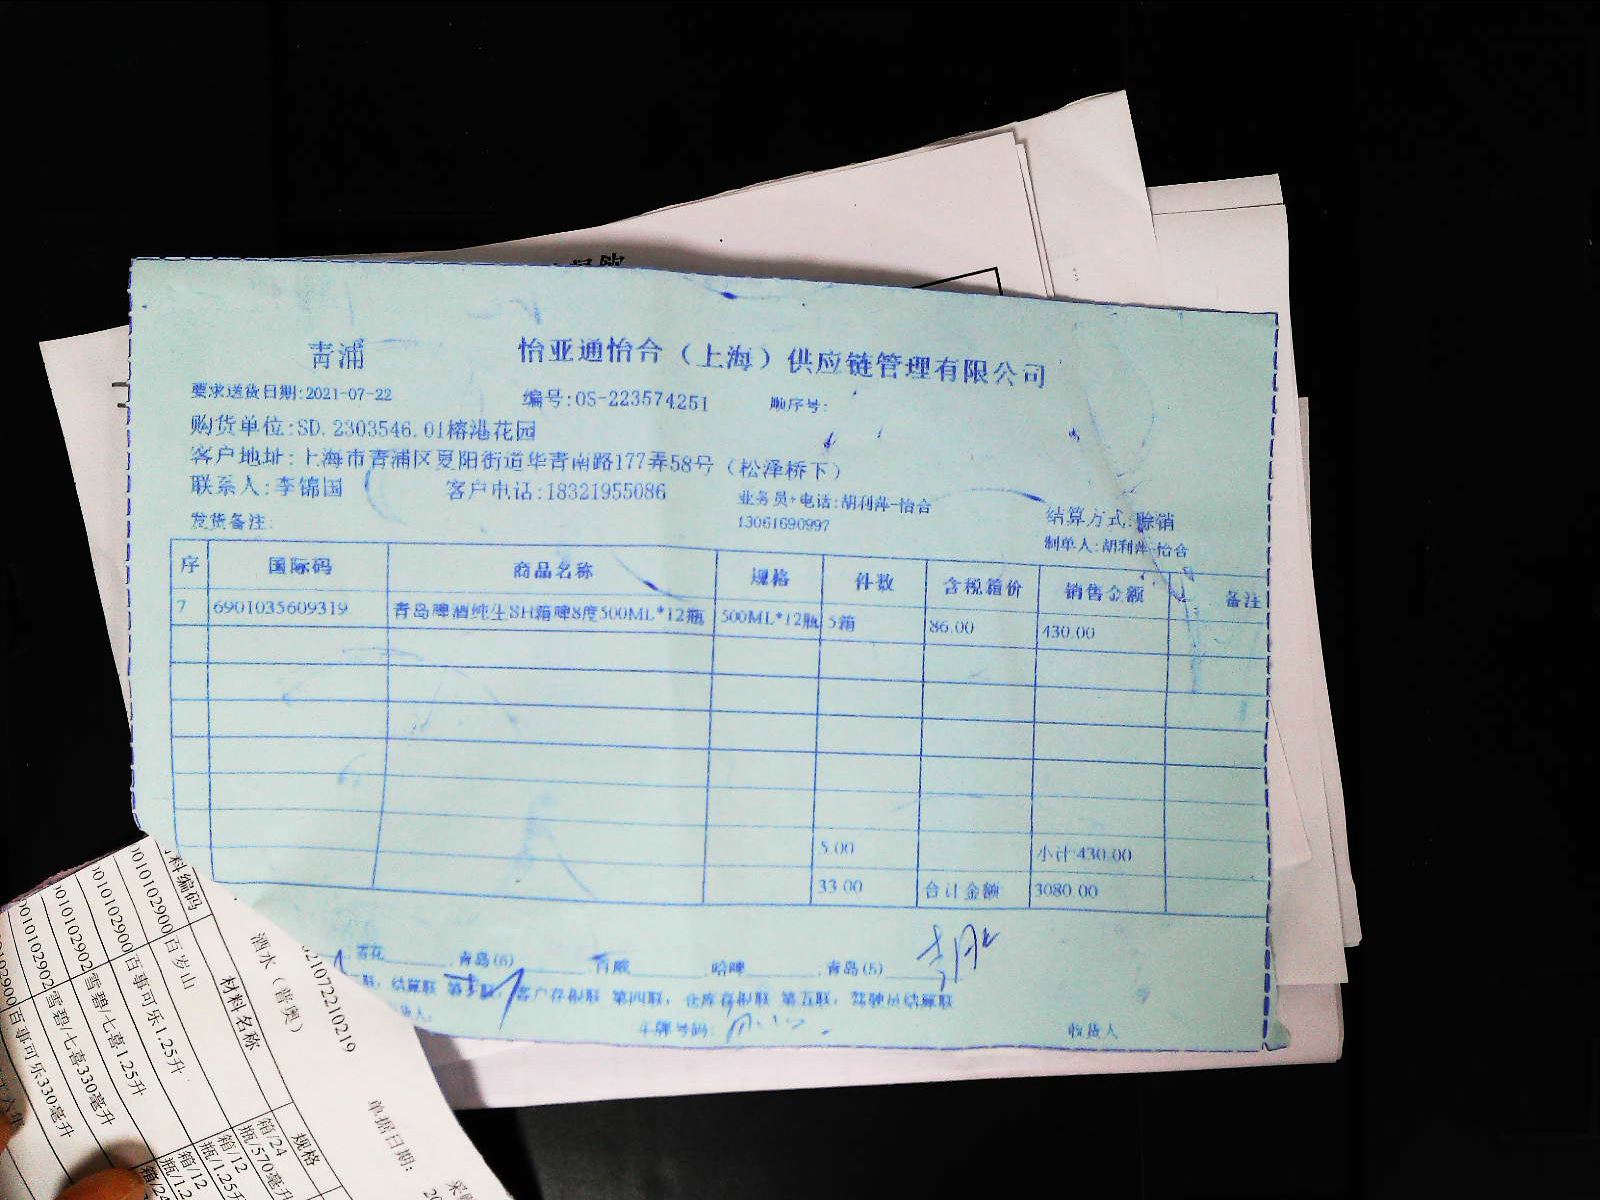 青浦 怡亚通怡合（上海）供应链管理有限公司
要求送货日期:2021-07-22 编号:OS-223574251 顺序号:
购货单位:SD.2303546.01榕港花园
客户地址:上海市青浦区夏阳街道华青南路177弄58号（松泽桥下）
联系人:李锦国 客户电话:18321955086 业务员+电话:胡利萍-怡合
13061690997 结算方式:赊销
发货备注: 制单人:胡利萍-怡合
序 国际码 商品名称 规格 件数 含税箱价 销售金额 备注
7 6901035609319 青岛啤酒纯生SH箱啤8度500ML*12瓶 500ML*12瓶 5箱 86.00 430.00
5.00 小计430.00
33.00 合计金额 3080.00
雪花 青岛(6) 哈啤 青岛(5)
联，结算联 第三联，客户存根联 第四联，仓库存根联 第五联，驾驶员结算联
货人: 车牌号码: 收货人
210722210219
酒水（普奥） 单据日期:
料编码 材料名称 规格
0101029 百岁山 箱/24瓶/570毫升
百事可乐1.25升 箱/12瓶/1.25升
雪碧/七喜1.25升 箱/12
雪碧/七喜330毫升 箱/24
百事可乐330毫升